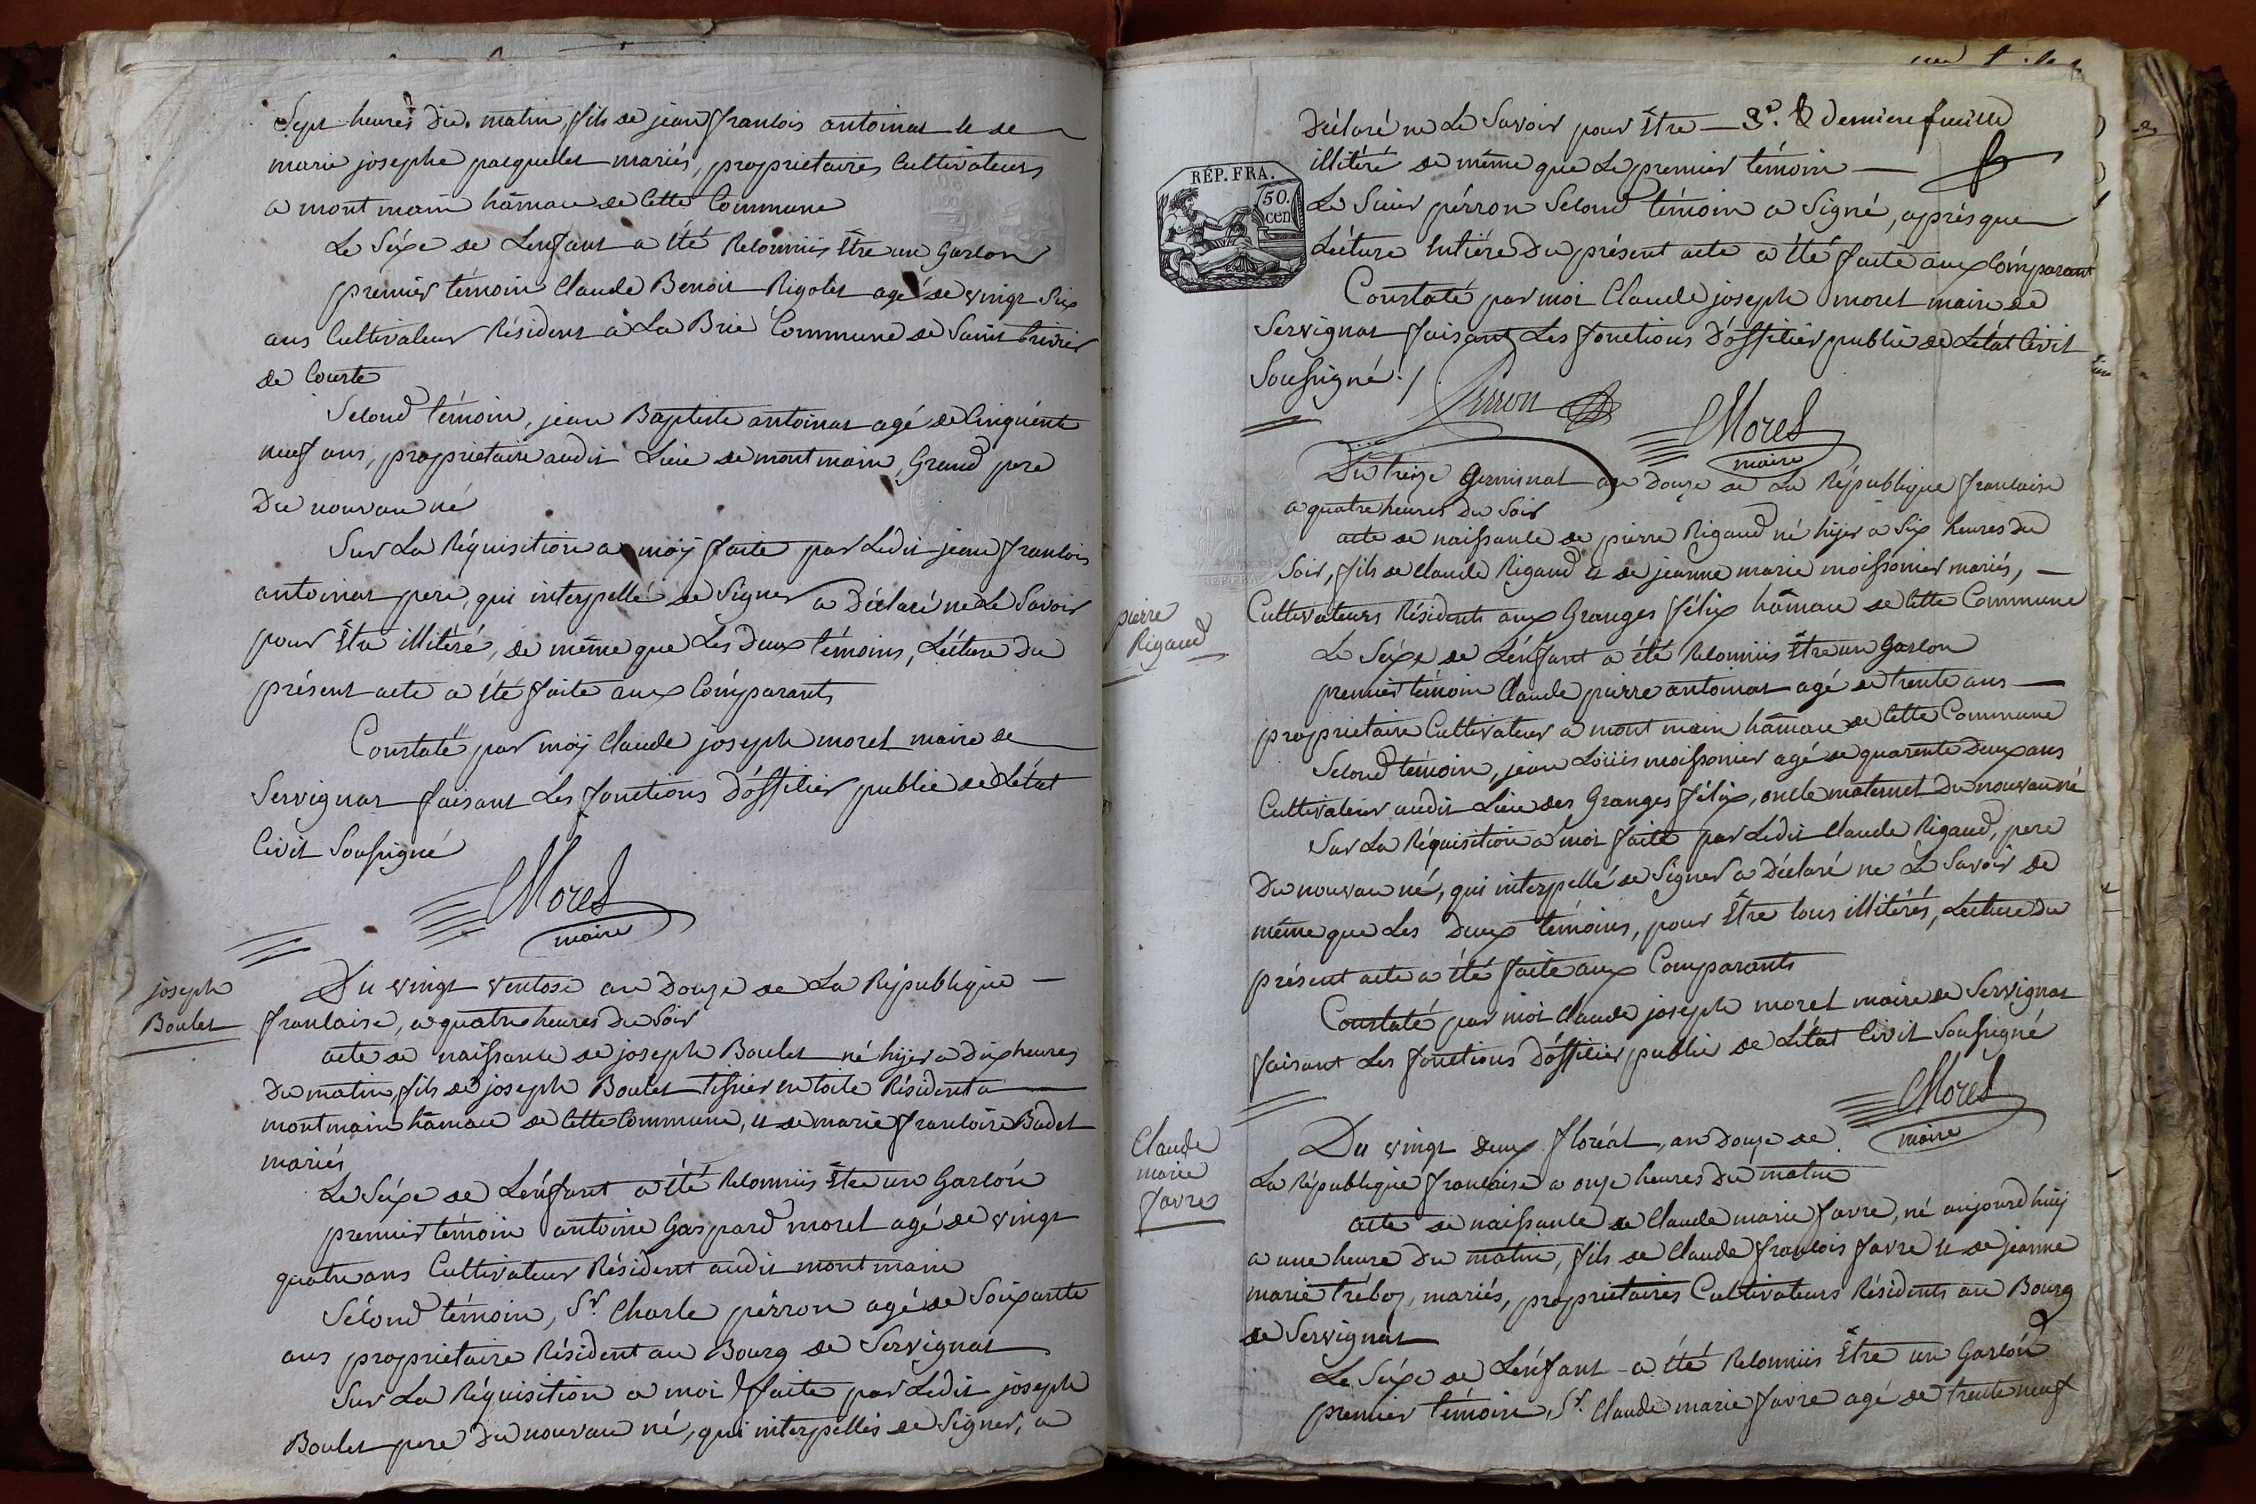 Sept heures du matin, fils de jean francois antoinat et de
marie josephe pacquelet mariés, proprietaires Cultivateurs
a montmain hâmau de Cette Commune
Le Séxe de Lenfant a été Reconniis Être un Garcon
premier témoin Claude Benoit Rigolet agé de vingt Six
ans Cultivateur Résident à La Brie Commune de Saint trivier
de Courte
Second témoin, jean Baptiste antoinat agé de Cinquente
neuf ans, proprietaire audit Lieu de montmain, Grand pere
Du nouvau né
Sur La Réquisition a moÿ faite par Ledit jean francois
antoinat pere, qui interpellé de Signer a Déclaré ne Le Savoir
pour Être illitéré, de même que Les Deux témoins, Lécture du
présent acte a été faite aux Compárants
Constaté par moÿ Claude joseph morel maire de
Servignat faisant Les fonctions D'ófficier public de L'état
Civil Soussigné
Morel
maire
joseph
Boulet
Du vingt ventose an Douze de La République
francaise, a quatre heures Du Soir
acte de naissance de joseph Boulet né hijer a Dix heures
Du matin, fils de joseph Boulet tissier en toile Résident a
montmain hâmau de Cette Commune, et de marie francoise Badet
mariés
Le Séxe de Lénfant a été Reconniis Être un Garcón
premier témoin antoine Gaspard morel agé de vingt
quatre ans Cultivateur Résident audit montmain
Sécond témoin, Sr. Charle pérron agé de Soixante
ans proprietaire Résident au Bourg de Servignat
Sur La Réquisition a moi faite par Ledit joseph
Boulet pere du nouvau né, qui interpellés de Signer, a
Déclaré ne Le Savoir pour Être 3e. & Derniere feuille
illitéré de même que Le premier témoin
RÉP. FRA.
50.
cen
Le Sieur pérron Second témoin a Signé, aprés que
Lécture Entiére du présent acte a été faite aux Compárant
Constaté par moi Claude joseph morel maire de
Servignat faisant Les fonctions D'ófficier public de L'état Civil
Soussigné ./
Perron
Morel
maire
Du treize Germinal an Douze de La République francaise
a quatre heures du Soir
pierre
Rigaud
acte de naissance de pierre Rigaud né hijer a Six heures du
Soir, fils de Claude Rigaud et de jeanne marie moissonier mariés,
Cultivateurs Résidents aux Granges félix hâmau de Cette Commune
Le Séxe de Lénfant a été Reconniis Être un Garcon
premier témoin Claude pierre antoinat agé de trente ans
proprietaire Cultivateur a montmain hâmau de Cette Commune
Second témoin, jean Loüis moissonier agé de quarente Deux ans
Cultivateur audit Lieu des Granges félix, oncle maternel Du nouvau né
Sur La Réquisition a moi faite par Ledit Claude Rigaud, pere
Du nouvau né, qui interpellé de Signer a Déclaré ne Le Savoir de
même que Les Deux témoins, pour Être tous illitérés, Lecture du
présent acte a été faite aux Comparants
Constaté par moi Claude joseph morel maire de Servignat
faisant Les fonctions D'ófficier public de L'état Civil Soussigné
Morel
maire
Claude
marie
favre
Du vingt deux floréal, an Douze de
La République francaise a onze heures Du matin
acte de naissance de Claude marie favre, né aujourd'huij
a une heure du matin, fils de Claude francois favre et de jeanne
marie tréboz, mariés, proprietaires Cultivateurs Résidents au Bourg
de Servignat
Le Séxe de Lénfant a été Reconniis Être un Garcón
premier témoin, Sr. Claude marie favre agé de trente neuf